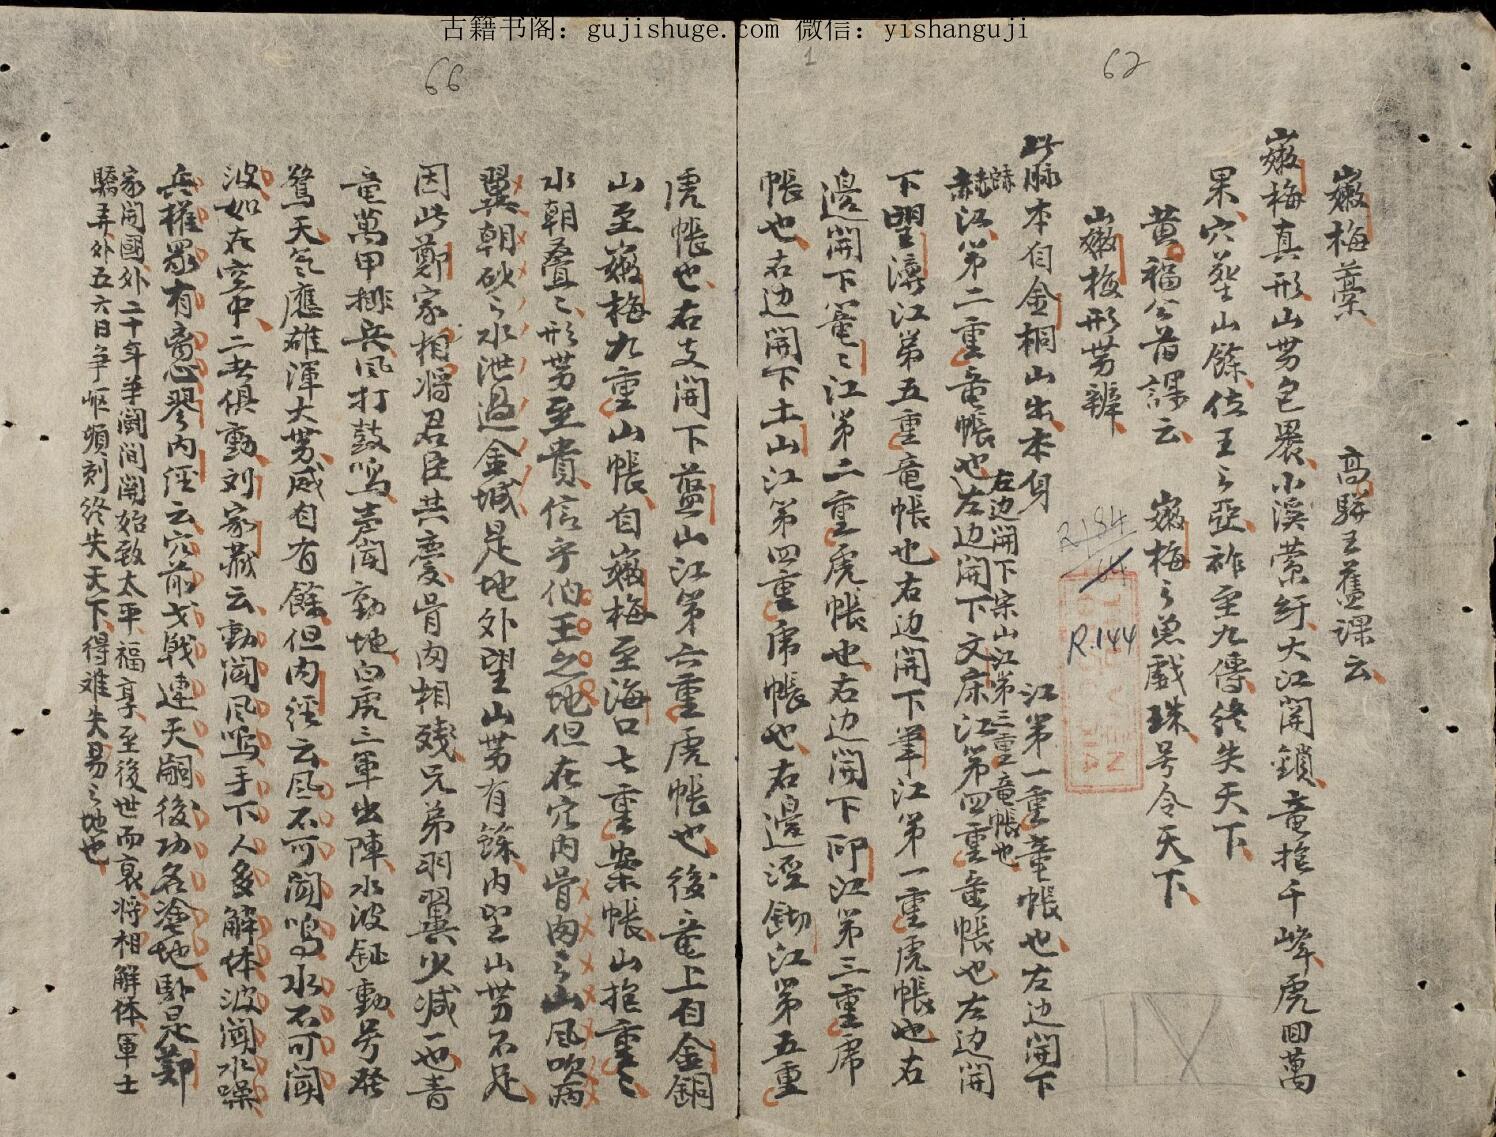 古籍书阁：gujishuge.com 微信：yishanguji
62
1
巖梅藁 高駢王舊課云
巖梅真形山势包裹小溪縈紆大江開鎖竜擁千峰虎回萬
果穴葬山餘位王之亞祚至九傳終失天下
黄福公首課云 巖梅之魚戲珠号令天下
巖梅形势辨
此脉本自金桐山出本身 江第一重竜帳也左边開下
左边開下宗山江第三重竜帳也
赫江第二重竜帳也左边開下文床江第四重竜帳也左边開
下望瀛江第五重竜帳也右边開下筆江第一重虎帳也右
邉開下篭〻江第二重虎帳也右边開下印江第三重席
帳也右边開下土山江第四重席帳也右邉淫鋤江第五重
R.184
R.144
66
虎帳也右支開下藍山江第六重虎帳也後竜上自金銅
山至巖梅九重山帳自巖梅至海口七重案帳山擁重〻
水朝叠〻形势至貴信乎伯王之地但在穴内骨肉之山風吹両
翼朝砂之水泄過金城是地外望山势有餘内望山势不足
因此鄭家相將君臣共慶骨肉相殘兄弟羽翼少减一也青
竜萬甲排兵風打鼓鳴声闻動地白虎三軍出陣水波鉦動号發
驚天气應雄渾大势威自有餘但内経云風不可闻鳴水不可闻
波如在空中二者俱動刘家藏云動闻風鳴手下人多解体波闻水噪
兵權眾有意心謬内経云穴前戈戟連天嗣後功名塗地卧是鄭
家開國外二十年華闕間開始致太平福享至後世而衰将相解体軍士
驕弄外五六日争岖頻刻終失天下得难失易之地也